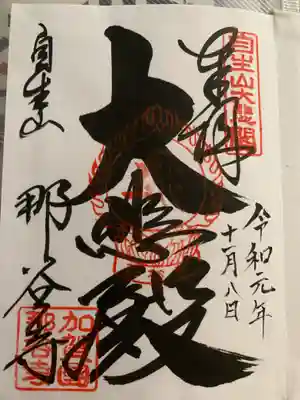 自生山大悲閣
奉拝
令和元年
十一月八日
大悲殿
自生山
那谷寺
加賀國
那谷寺